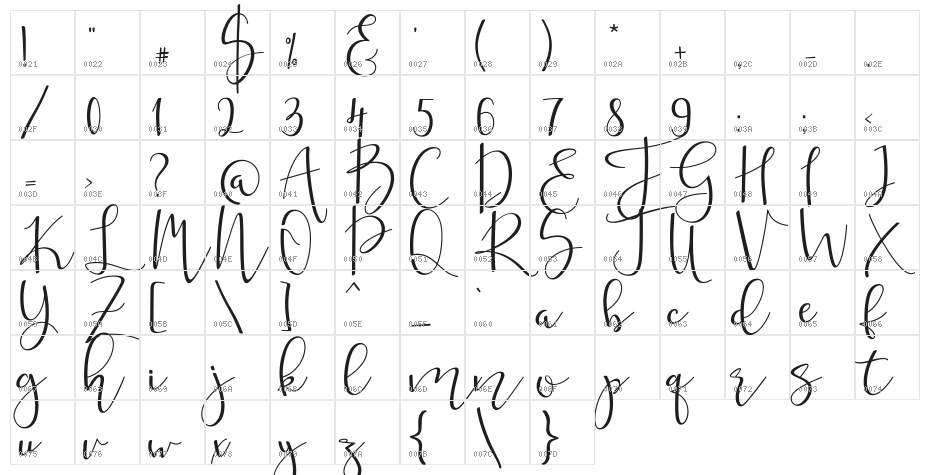 ! " # $ % & ' ( ) * + , - .
0021 0022 0023 0024 0025 0026 0027 0028 0029 002A 002B 002C 002D 002E
/ 0 1 2 3 4 5 6 7 8 9 : ; <
002F 0030 0031 0032 0033 0034 0035 0036 0037 0038 0039 003A 003B 003C
= > ? @ A B C D E F G H I J
003D 003E 003F 0040 0041 0042 0043 0044 0045 0046 0047 0048 0049 004A
K L M N O P Q R S T U V W X
004B 004C 004D 004E 004F 0050 0051 0052 0053 0054 0055 0056 0057 0058
Y Z [ \ ] ^ _ ` a b c d e f
0059 005A 005B 005C 005D 005E 005F 0060 0061 0062 0063 0064 0065 0066
g h i j k l m n o p q r s t
0067 0068 0069 006A 006B 006C 006D 006E 006F 0070 0071 0072 0073 0074
u v w x y z { \ }
0075 0076 0077 0078 0079 007A 007B 007C 007D